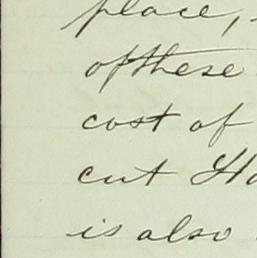 place,
of these
cost of
cut
is also